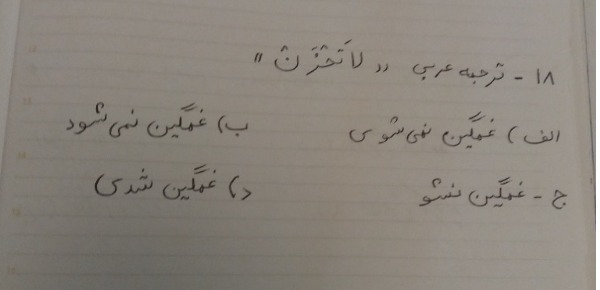 ۱۸ - ترجمه عربی « لاَتَحْزَنْ »
الف) غمگین نمی‌شوی ب) غمگین نمی‌شود
ج - غمگین نشو د) غمگین شدی